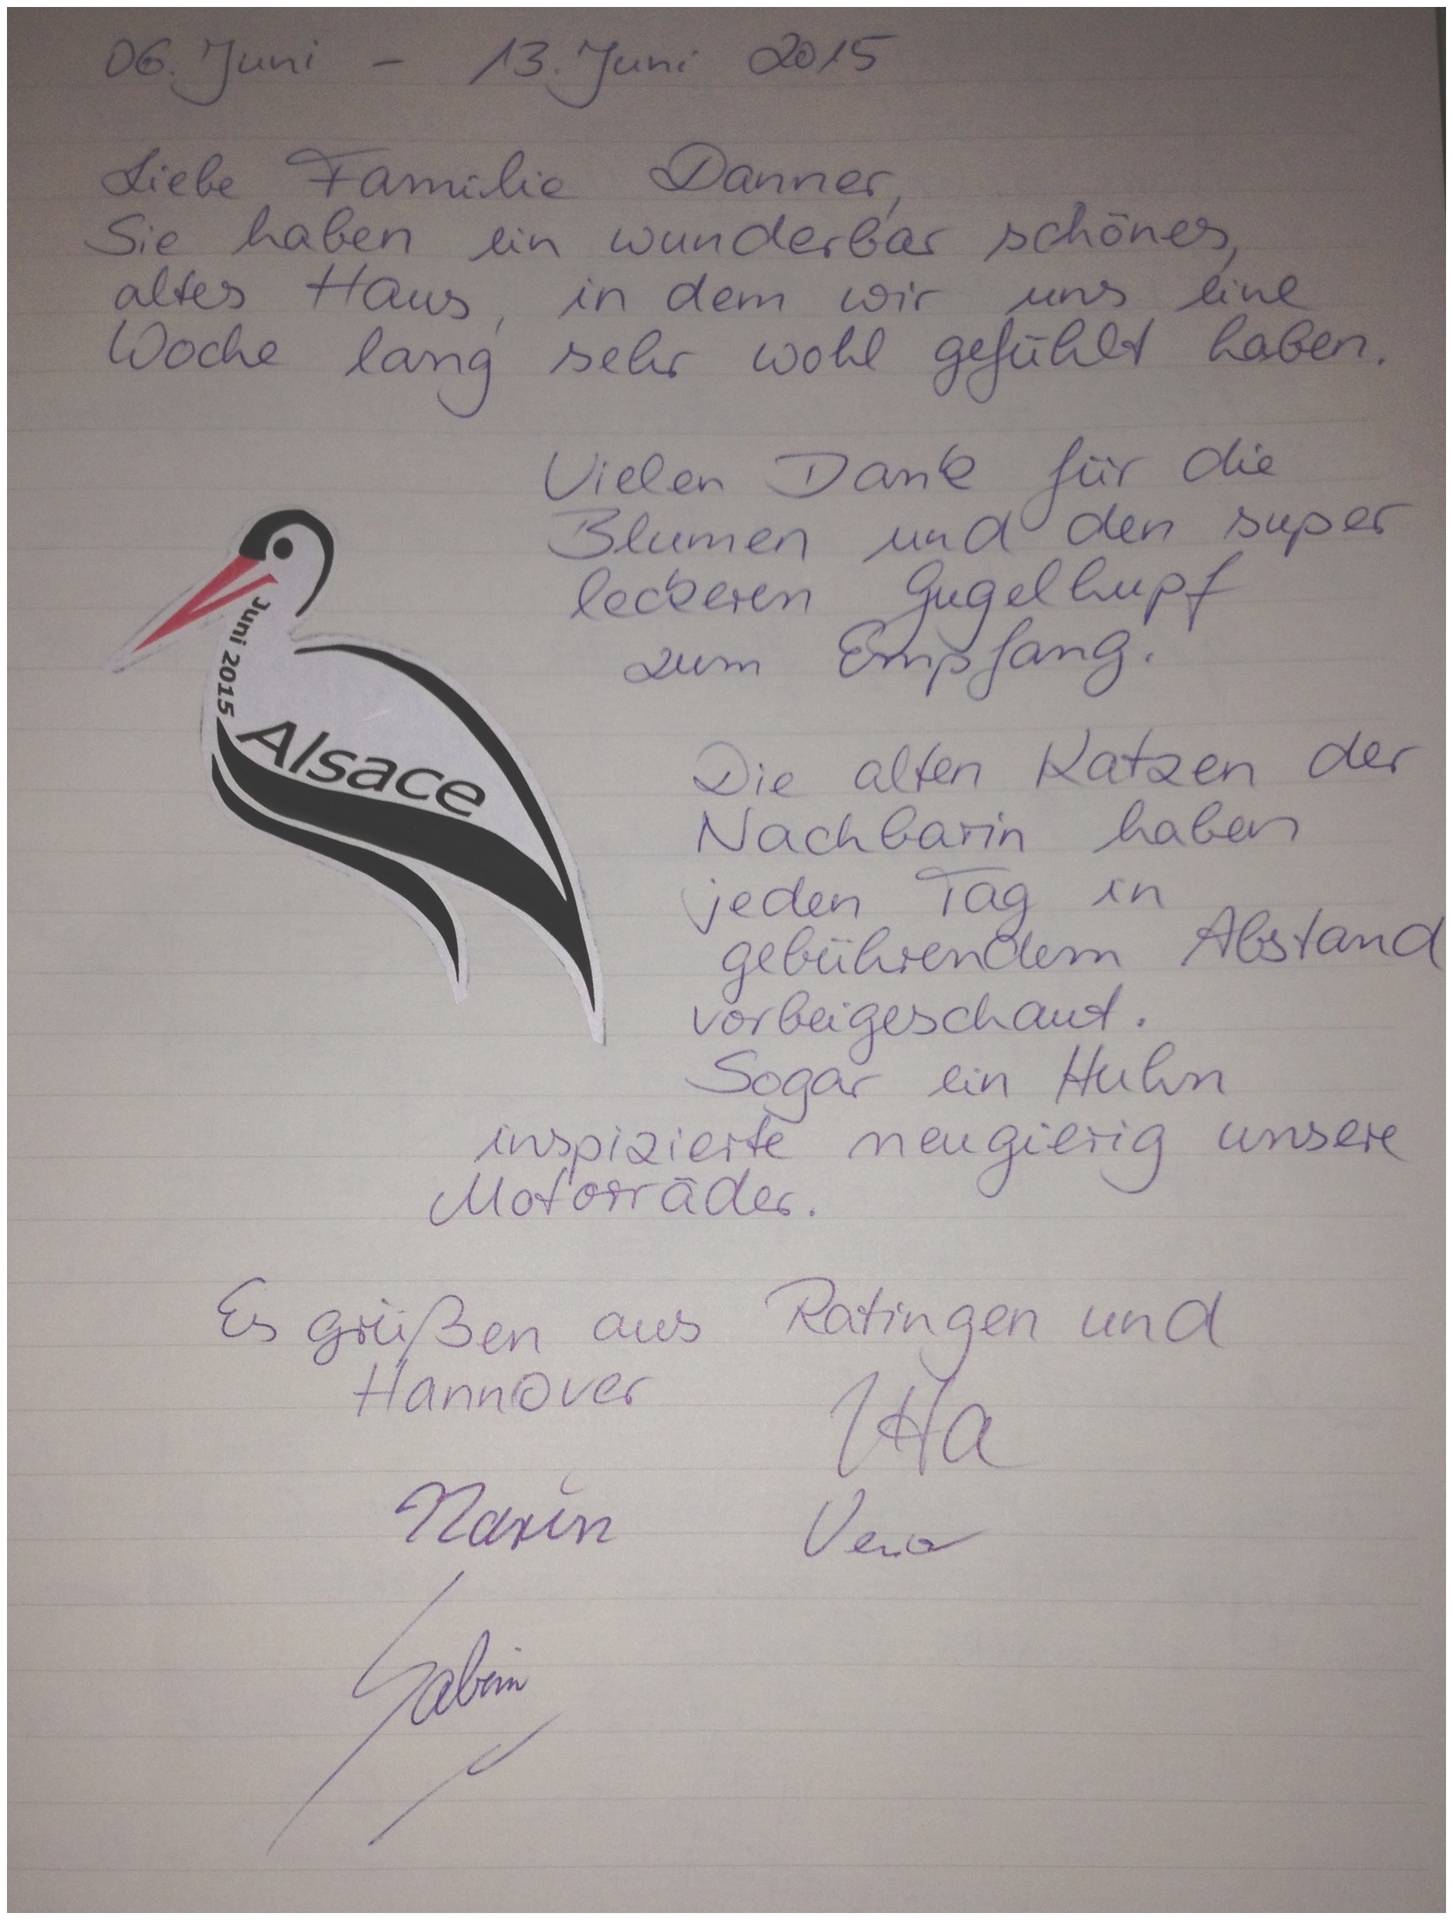 06. Juni - 13. Juni 2015
Liebe Familie Danner,
Sie haben ein wunderbar schönes,
altes Haus, in dem wir uns eine
Woche lang sehr wohl gefühlt haben.
Vielen Dank für die
Blumen und den super
leckeren Gugelhupf
zum Empfang.
Juni 2015
Alsace
Die alten Katzen der
Nachbarin haben
jeden Tag in
gebührendem Abstand
vorbeigeschaut.
Sogar ein Huhn
inspizierte neugierig unsere
Motorräder.
Es grüßen aus Ratingen und
Hannover
Utta
Vera